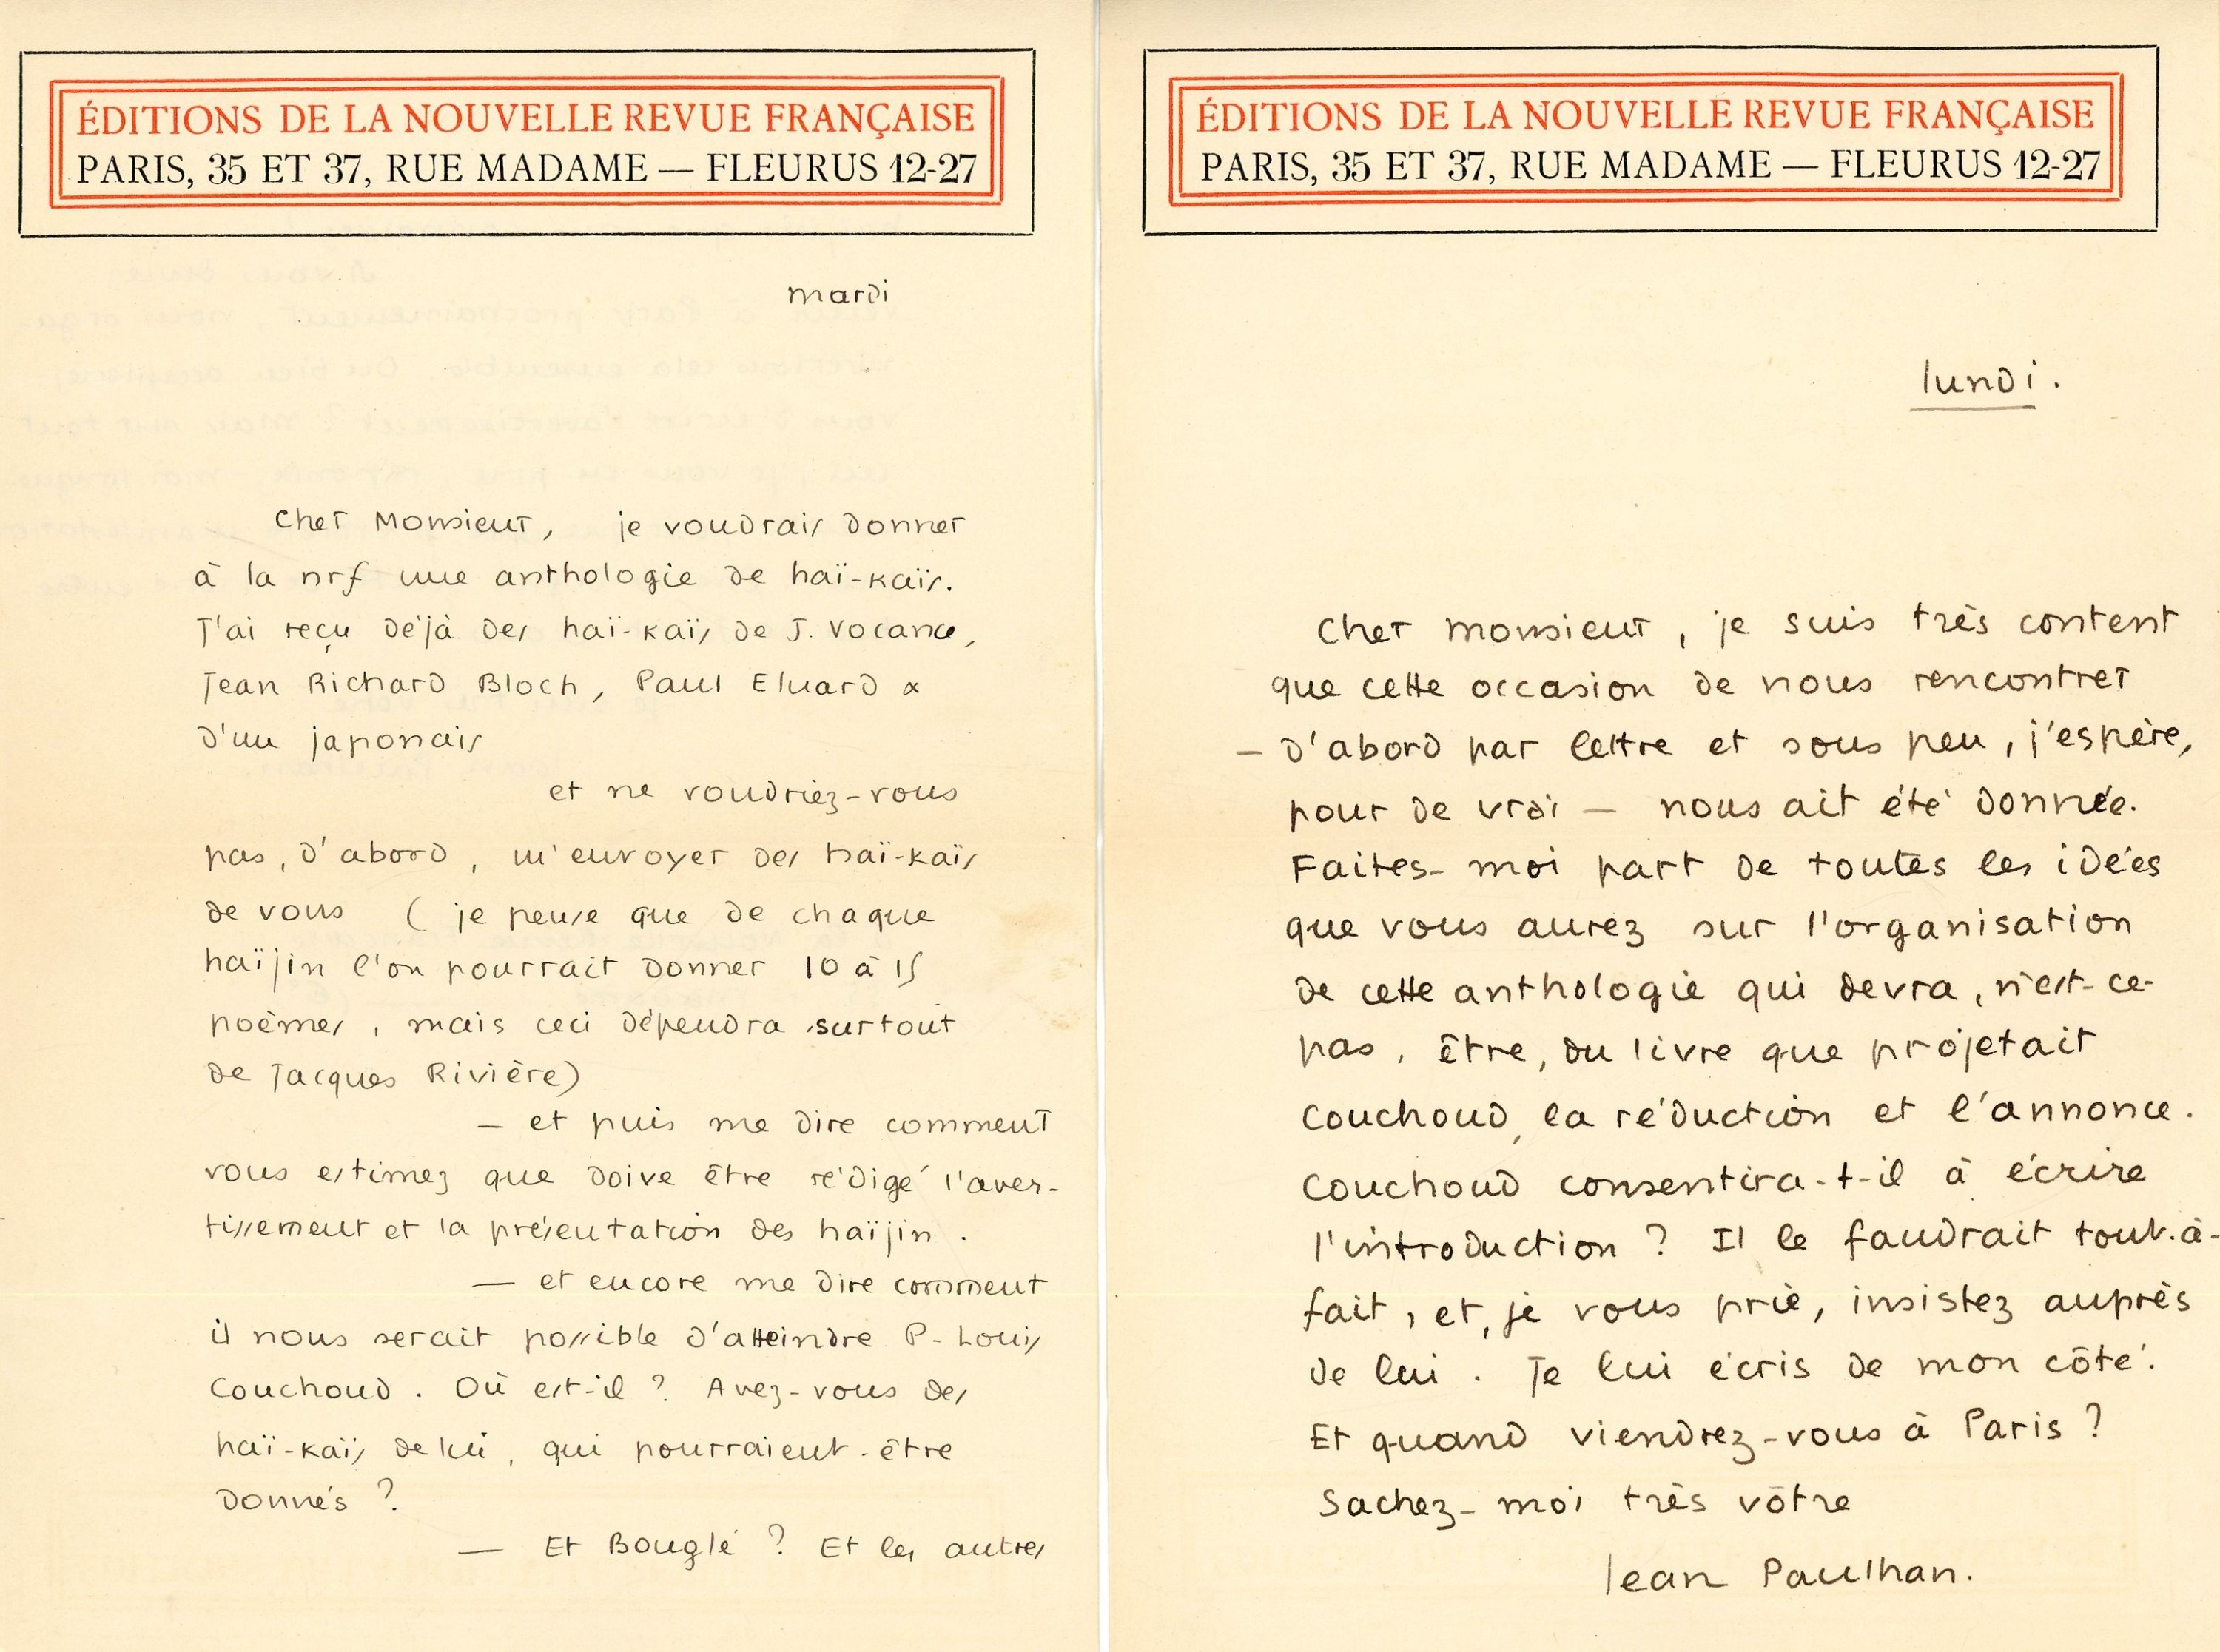 ÉDITIONS DE LA NOUVELLE REVUE FRANÇAISE
PARIS, 35 ET 37, RUE MADAME — FLEURUS 12-27
mardi
Cher Monsieur, je voudrais donner
à la nrf une anthologie de haï-kaïs.
J'ai reçu déjà des haï-kaïs de J. Vocance,
Jean Richard Bloch, Paul Eluard &
d'un japonais
et ne voudriez-vous
pas, d'abord, m'envoyer des haï-kaïs
de vous (je pense que de chaque
haïjin l'on pourrait donner 10 à 15
poèmes, mais ceci dépendra surtout
de Jacques Rivière)
— et puis me dire comment
vous estimez que doive être rédigé l'aver-
tissement et la présentation des haïjin.
— et encore me dire comment
il nous serait possible d'atteindre P-Louis
Couchoud. Où est-il ? Avez-vous des
haï-kaïs de lui, qui pourraient-être
donnés ?
— Et Bouglé ? Et les autres
ÉDITIONS DE LA NOUVELLE REVUE FRANÇAISE
PARIS, 35 ET 37, RUE MADAME — FLEURUS 12-27
lundi.
Cher monsieur, je suis très content
que cette occasion de nous rencontrer
— d'abord par lettre et sous peu, j'espère,
pour de vrai — nous ait été donnée.
Faites-moi part de toutes les idées
que vous aurez sur l'organisation
de cette anthologie qui devra, n'est-ce-
pas, être, du livre que projetait
Couchoud, la réduction et l'annonce.
Couchoud consentira-t-il à écrire
l'introduction ? Il le faudrait tout-à-
fait, et, je vous prie, insistez auprès
de lui. Je lui écris de mon côté.
Et quand viendrez-vous à Paris ?
Sachez-moi très vôtre
Jean Paulhan.